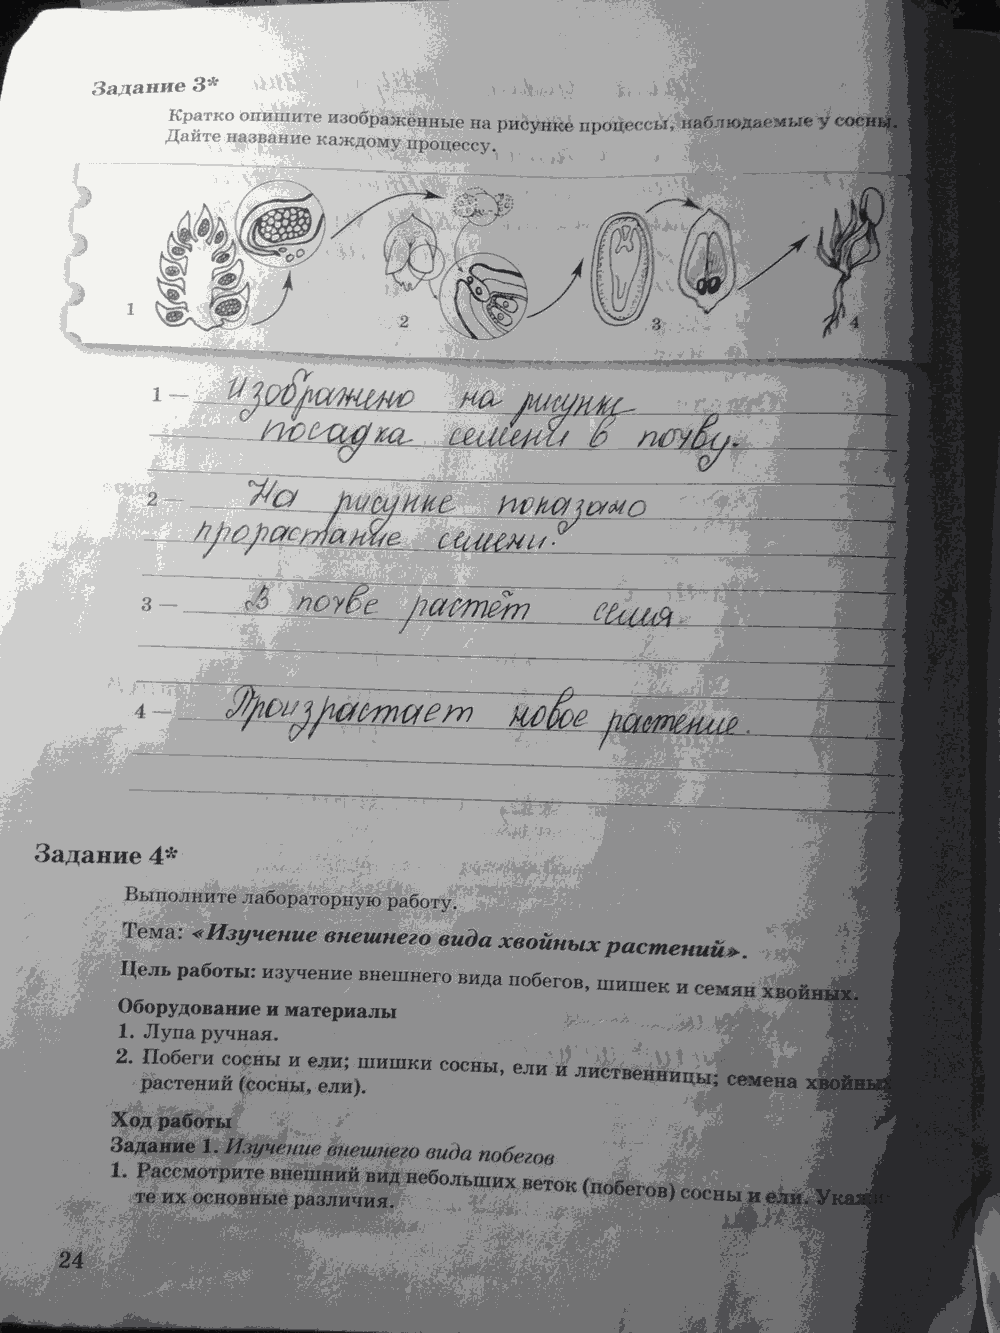 Задание 3*
Кратко опишите изображенные на рисунке процессы, наблюдаемые у сосны.
Дайте название каждому процессу.
1 2 3 4
1 — Изображено на рисунке
посадка семени в почву.
2 — На рисунке показано
прорастание семени.
3 — В почве растёт семя
4 — Произрастает новое растение.
Задание 4*
Выполните лабораторную работу.
Тема: «Изучение внешнего вида хвойных растений».
Цель работы: изучение внешнего вида побегов, шишек и семян хвойных.
Оборудование и материалы
1. Лупа ручная.
2. Побеги сосны и ели; шишки сосны, ели и лиственницы; семена хвойных
растений (сосны, ели).
Ход работы
Задание 1. Изучение внешнего вида побегов
1. Рассмотрите внешний вид небольших веток (побегов) сосны и ели. Укажи
те их основные различия.
24